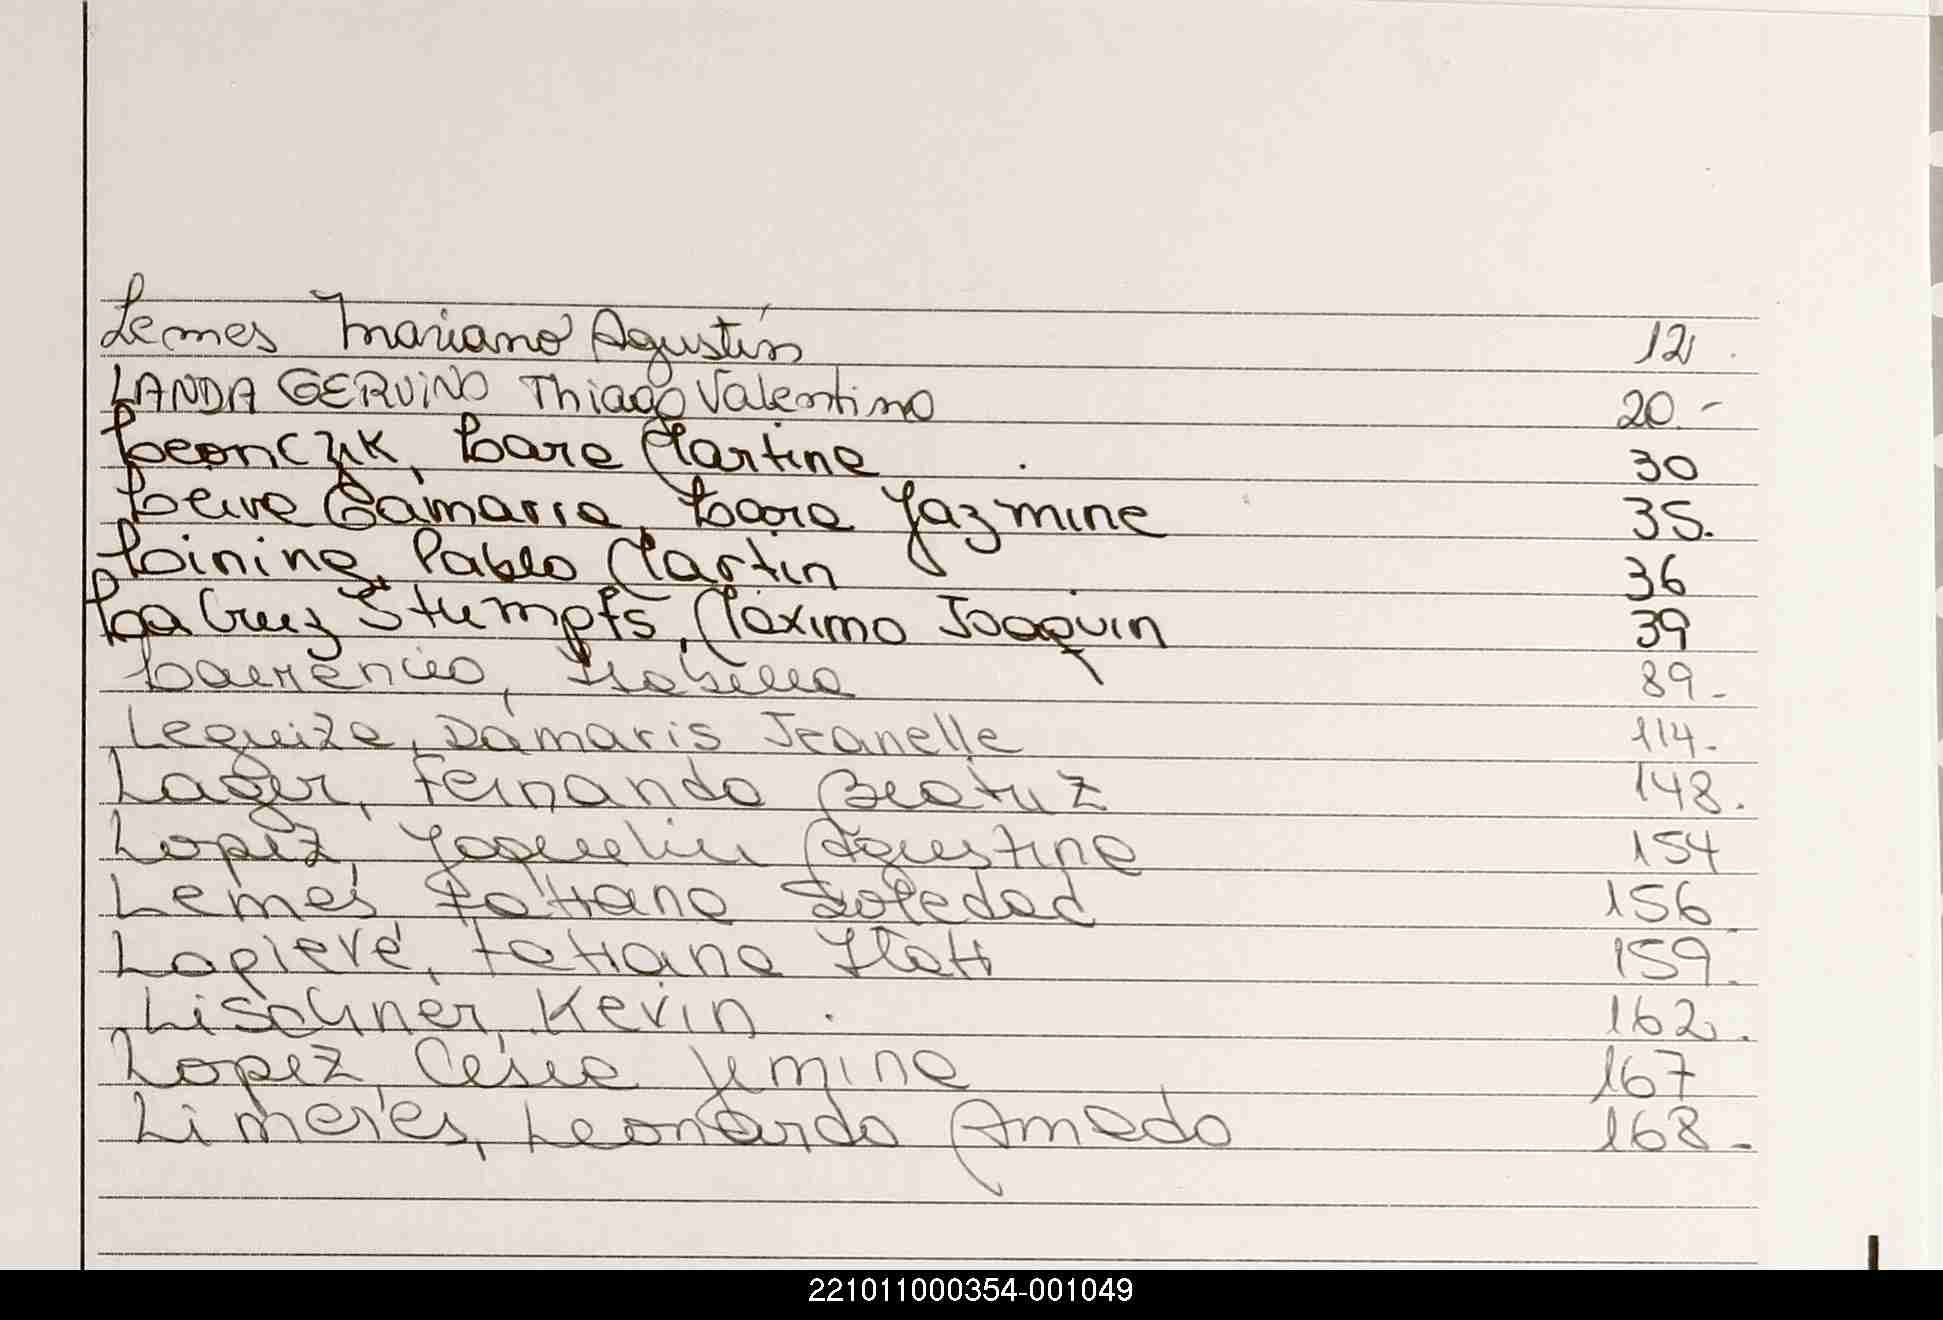 Lemes Mariano Agustín 12
LANDA GERVINO Thiago Valentino 20.-
Leonczik, Lara Martina 30
Leiva Gamarra, Lara Jazmine 35.
Loining, Pablo Martin 36
La Cruz Stumpfs, Máximo Joaquin 39
Laurencio, Isabella 89-
Leguiza, Damaris Jeanelle 114-
Lager, Fernanda Beatriz 148.
Lopez, Joquelin Agustina 154
Lemes, Tatiana Soledad 156
Lapieve, Tatiana 159.
Lischner, Kevin 162.
Lopez, Cesia Jemina 167
Limeres, Leonardo Amado 168-
221011000354-001049